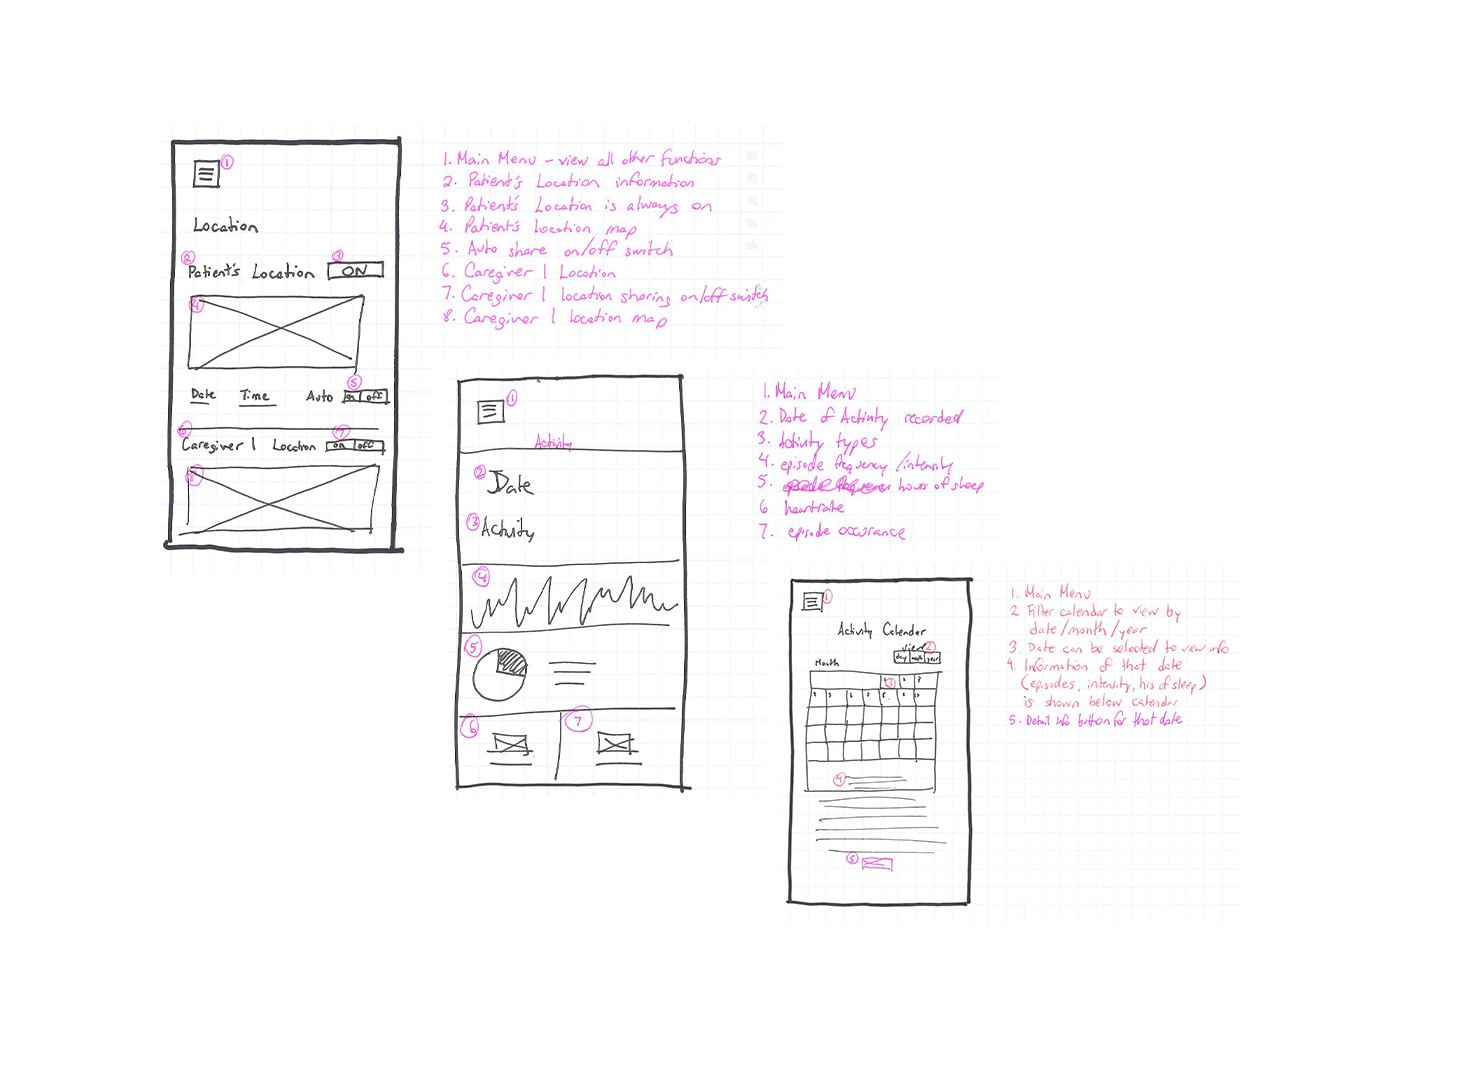 1
Location
2
3
Patient's Location ON
4
5
Date Time Auto on off
6
7
Caregiver 1 Location on off
8
1. Main Menu – view all other functions
2. Patient's Location information
3. Patient's Location is always on
4. Patient's Location map
5. Auto share on/off switch
6. Caregiver 1 Location
7. Caregiver 1 location sharing on/off switch
8. Caregiver 1 location map
1
Activity
2 Date
3 Activity
4
5
6
7
1. Main Menu
2. Date of Activity recorded
3. Activity types
4. episode frequency/intensity
5. hours of sleep
6 heartrate
7. episode occurance
1
Activity Calender
view 2
Month day month year
3
4
5
1. Main Menu
2 Filter calendar to view by
date/month/year
3. Date can be selected to view info
4. Information of that date
(episodes, intensity, hrs of sleep)
is shown below calendar
5. Detail info button for that date